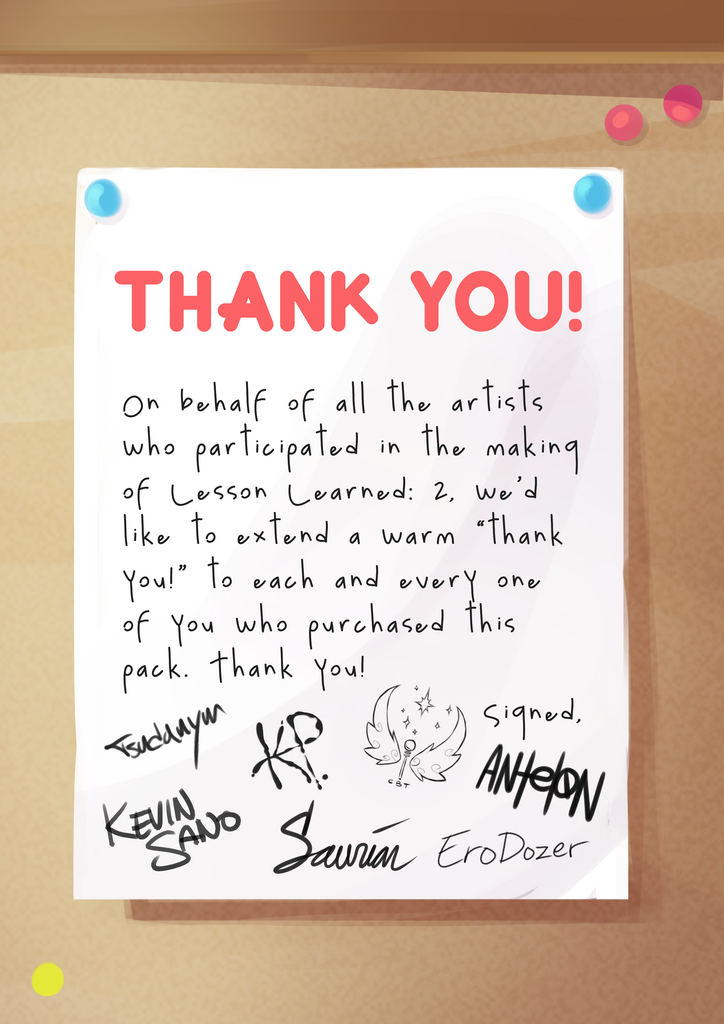 THANK YOU!
On behalf of all the artists
who participated in the making
of Lesson Learned: 2, we'd
like to extend a warm “thank
you!” to each and every one
of you who purchased this
pack. Thank you!
signed,
Tsudanym
K.P.
CBT
ANtelON
KEVIN
SANO
Saurian
EroDozer